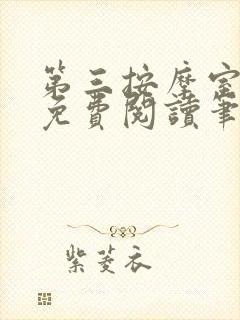 第三按摩室
免費閱讀筆
紫菱衣